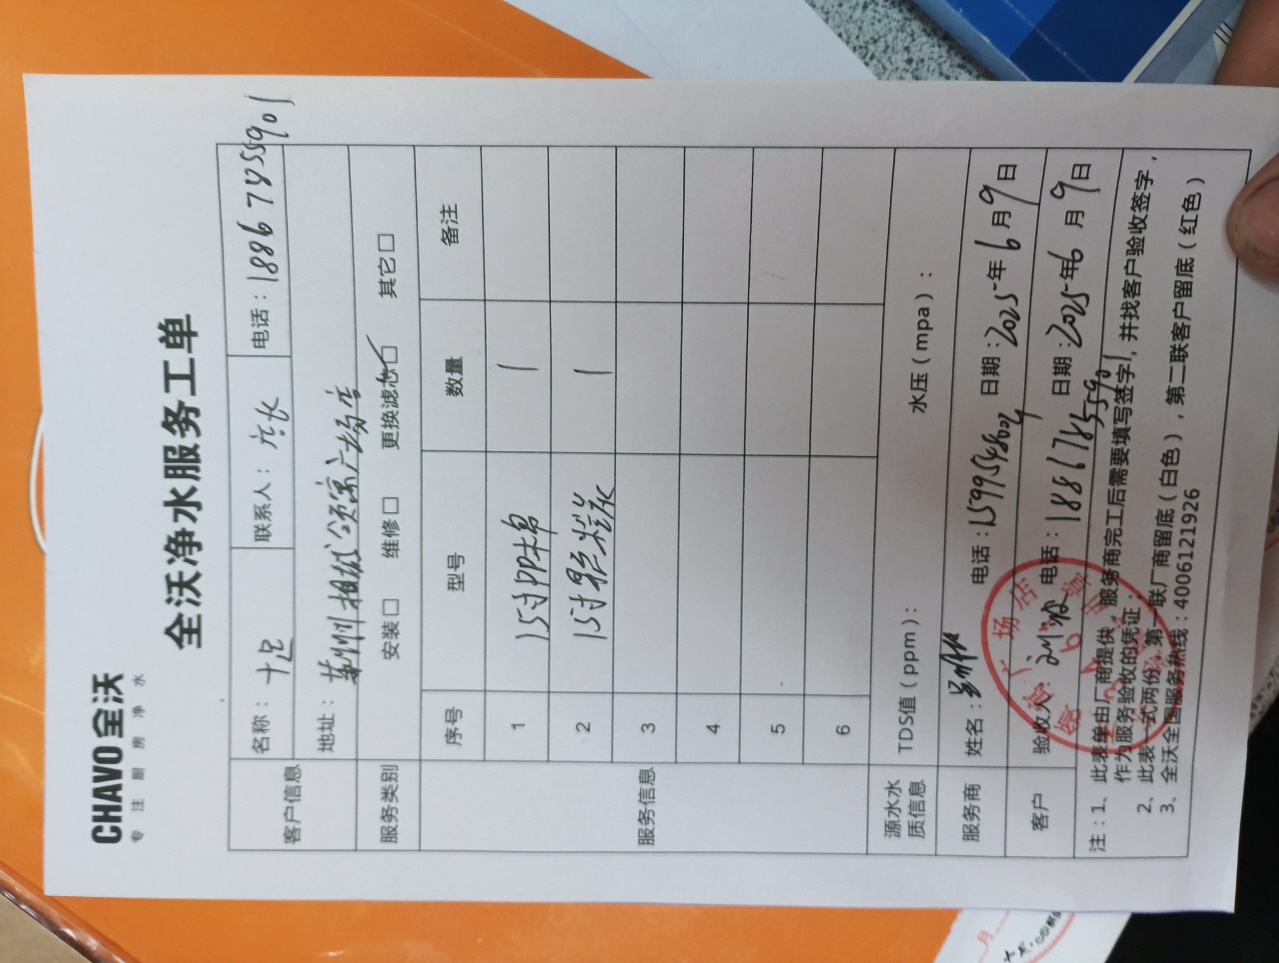 CHAVO全沃
专注厨房净水
全沃净水服务工单
客户信息 名称：十足 联系人：店长 电话：18867855901
地址：苏州相城领寓广场店
服务类别 安装□ 维修□ 更换滤芯☑ 其它□
服务信息 序号 型号 数量 备注
1 15寸PP棉 1
2 15寸颗粒炭 1
3
4
5
6
源水水质信息 TDS值（ppm）： 水压（mpa）：
服务商 姓名： 电话：15995498004 日期：2025年6月9日
客户 验收人： 电话：18867855901 日期：2025年6月9日
注：1、此表单由厂商提供，服务商完工后需要填写签字，并找客户验收签字，
作为服务验收的凭证；
2、此表一式两份，第一联厂商留底（白色），第二联客户留底（红色）
3、全沃全国服务热线：4006121926
广场店
月